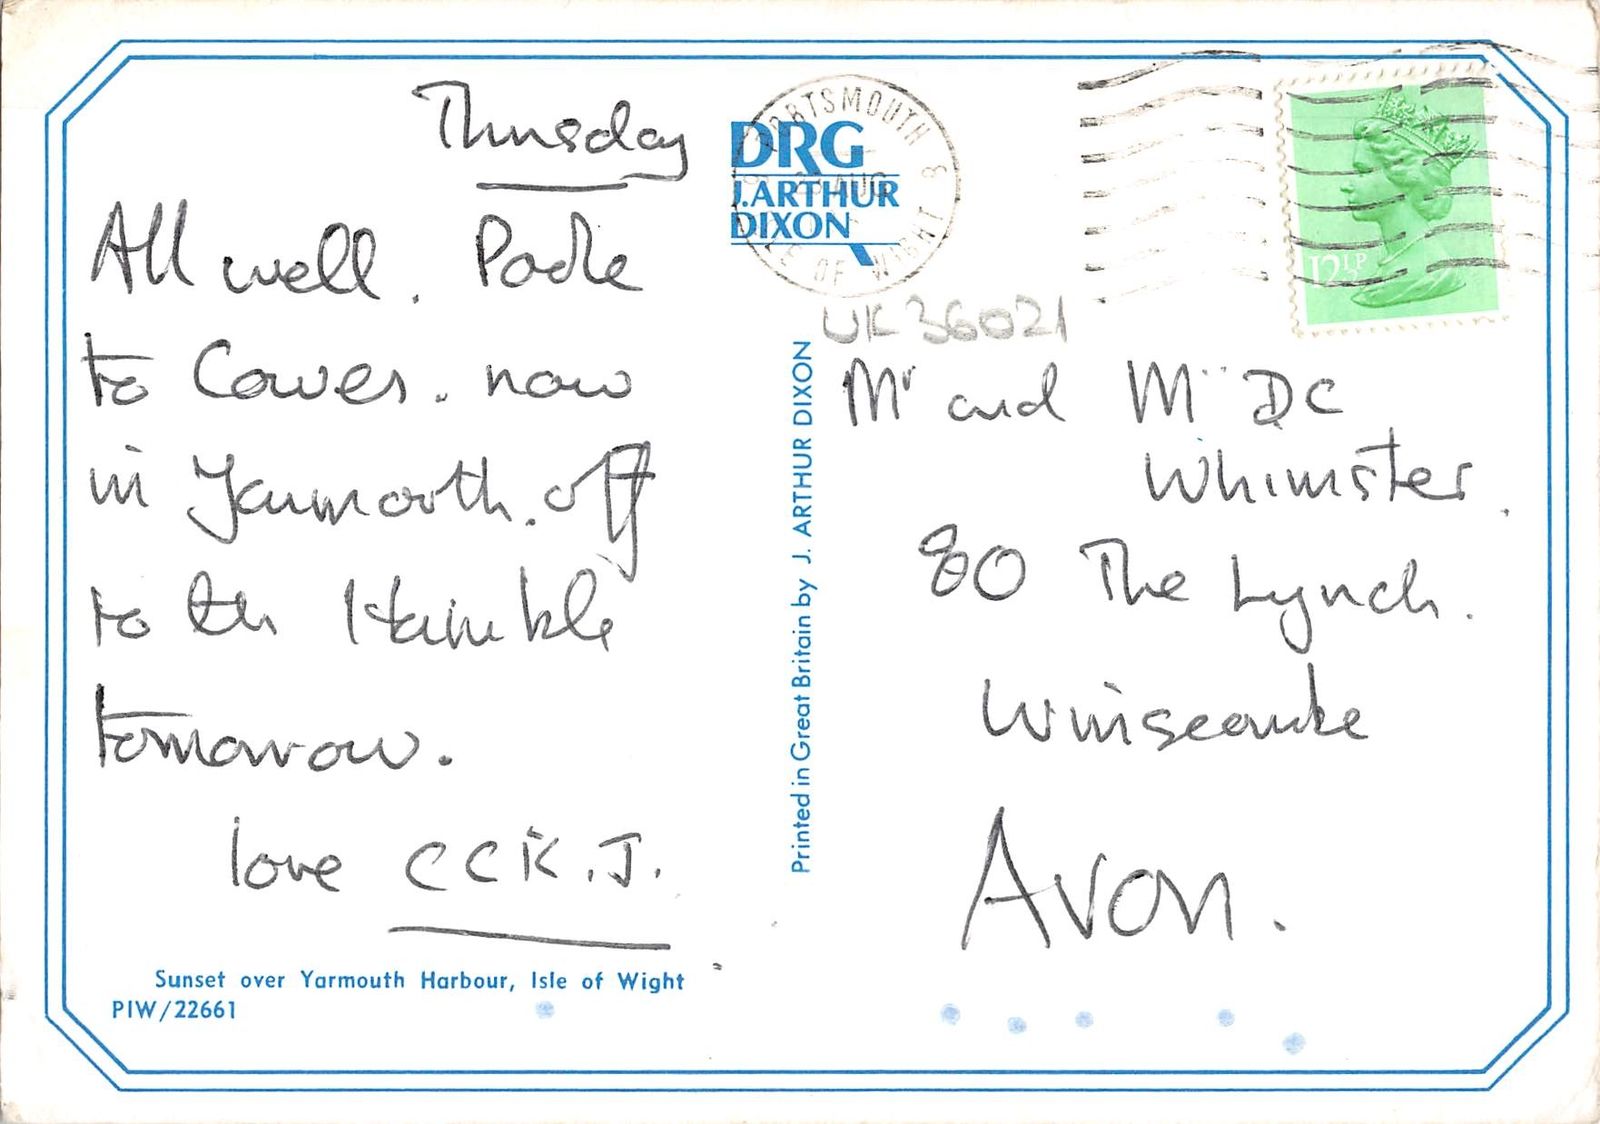 Thursday
All well. Poole
to Cowes. now
in Yarmouth. off
to the Hamble
tomorrow.
love CCK.J.
Sunset over Yarmouth Harbour, Isle of Wight
PIW/22661
DRG
J.ARTHUR
DIXON
PORTSMOUTH &
AUG
ISLE OF WIGHT
UK36021
Printed in Great Britain by J. ARTHUR DIXON
12½P
Mr and Mrs DC
Whimster.
80 The Lynch.
Winscombe
Avon.